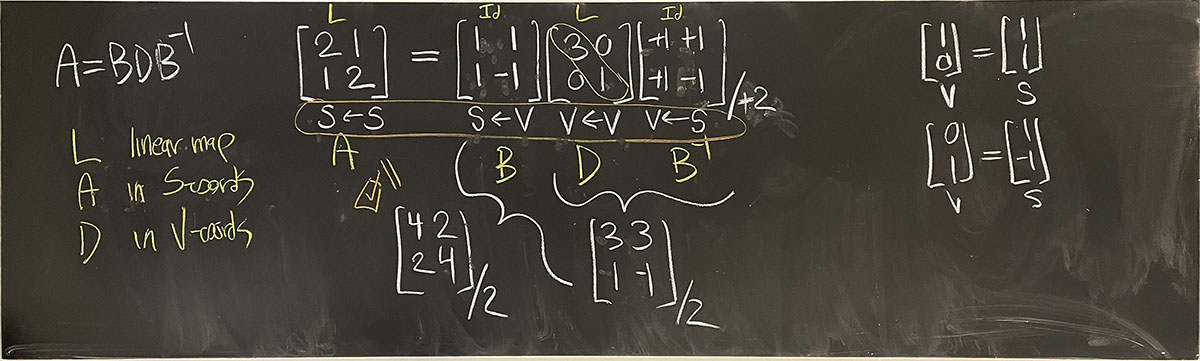 A=BDB⁻¹
L linear map
A in S-coords
D in V-coords
L Id L Id
[2 1; 1 2] = [1 1; 1 -1] [3 0; 0 1] [+1 +1; +1 -1]/+2
S←S S←V V←V V←S
A B D B⁻¹
[4 2; 2 4]/2 [3 3; 1 -1]/2
[1; 0] = [1; 1]
V S
[0; 1] = [1; -1]
V S